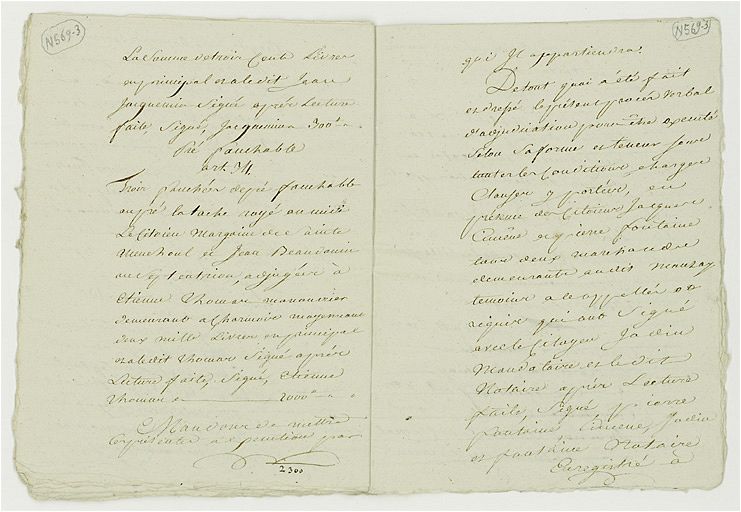 N569-3
La Somme de trois Cents Livres
en principal et a ledit Jean
Jacquemin Signé après Lecture
faite, Signé, Jacquemin 300
Pré fauchable
art. 34
Trois fauchées de pré fauchable
au pré la tache royé au midi
Le Citoien Margaine de Sainte
Menehoul et Jean Beaudouin
au Septentrion, adjugées à
Etienne Thomas manouvrier
demeurant a Charmois moyennant
deux mille Livres en principal
et a ledit Thomas Signé après
Lecture faite, Signé, Etienne
Thomas 2000
Mandons de mettre
les présentes a exécution par
2300
N569-3
qui Il appartiendra.
De tout quoi a été fait
et dressé le présent procès verbal
d'adjudication pour être exécuté
Selon Sa forme et teneur Sous
toutes les Conditions, charges
Clauses y portées, en
présence des Citoiens Jacques
et pierre fontaine
tous deux marchands
demeurants audit mouzay
temoins a ce appellés et
requis qui ont Signé
avec le Citoyen Jadin
Mandataire et ledit
Notaire après Lecture
faite, Signé, pierre
fontaine Jadin
et fontaine Notaire
Enregistré à